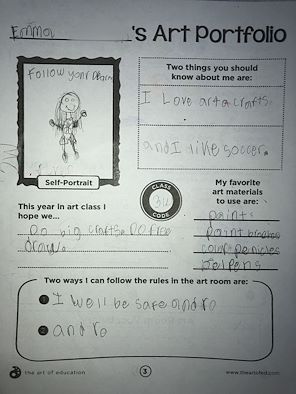 Emma 's Art Portfolio
Follow your dream
Self-Portrait
Two things you should
know about me are:
I Love art & crafts.
and I like soccer.
This year in art class I
hope we...
Do big crafts. Do free
draw.
CLASS
CODE
3U
My favorite
art materials
to use are:
paints
paint brushes
Two ways I can follow the rules in the art room are:
1 I well be safe and ro
2 and ro
the art of education
3
www.theartofed.com